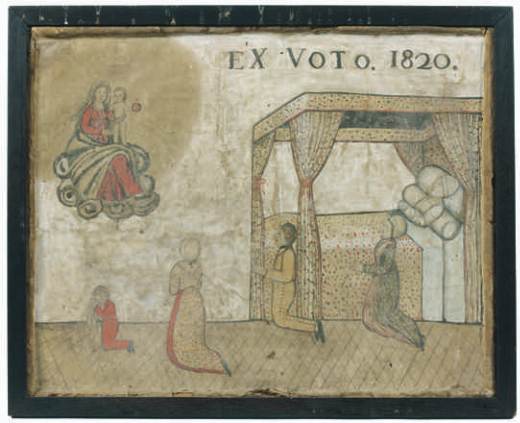 EX VOTO. 1820.